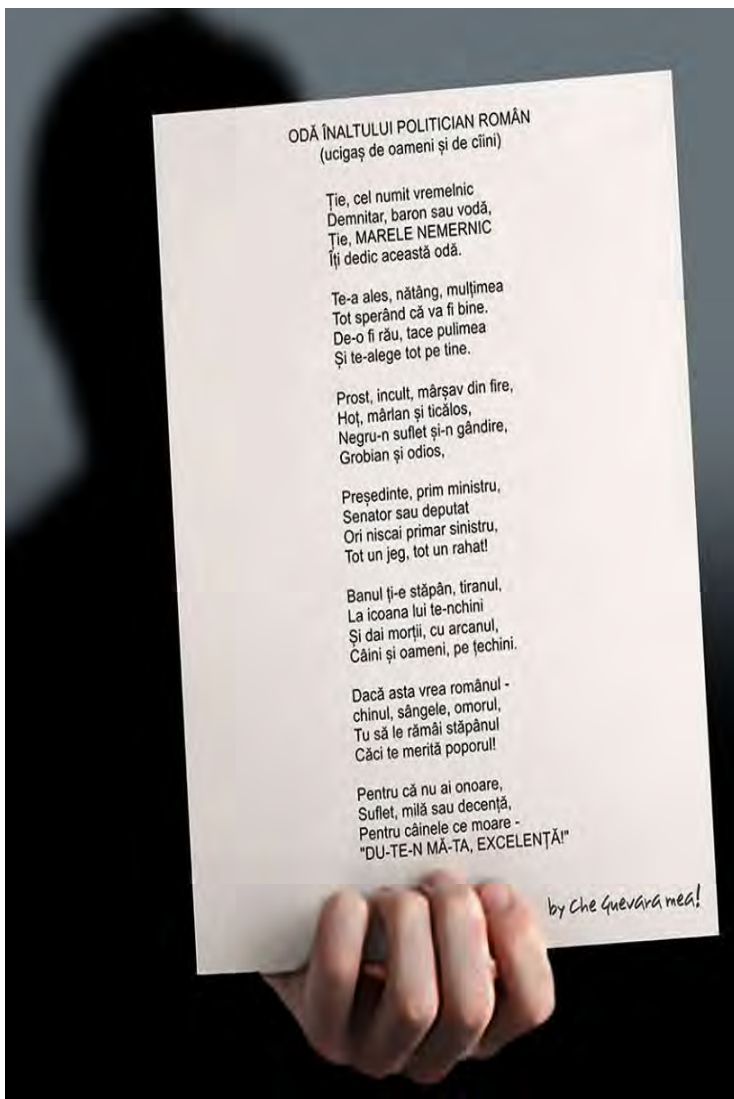 ODĂ ÎNALTULUI POLITICIAN ROMÂN
(ucigaș de oameni și de cîini)
Ție, cel numit vremelnic
Demnitar, baron sau vodă,
Ție, MARELE NEMERNIC
Îți dedic această odă.
Te-a ales, nătâng, mulțimea
Tot sperând că va fi bine.
De-o fi rău, tace pulimea
Și te-alege tot pe tine.
Prost, incult, mârșav din fire,
Hoț, mârlan și ticălos,
Negru-n suflet și-n gândire,
Grobian și odios,
Președinte, prim ministru,
Senator sau deputat
Ori niscai primar sinistru,
Tot un jeg, tot un rahat!
Banul ți-e stăpân, tiranul,
La icoana lui te-nchini
Și dai morții, cu arcanul,
Câini și oameni, pe țechini.
Dacă asta vrea românul -
chinul, sângele, omorul,
Tu să le rămâi stăpânul
Căci te merită poporul!
Pentru că nu ai onoare,
Suflet, milă sau decență,
Pentru câinele ce moare -
"DU-TE-N MĂ-TA, EXCELENȚĂ!"
by Che Guevara mea!